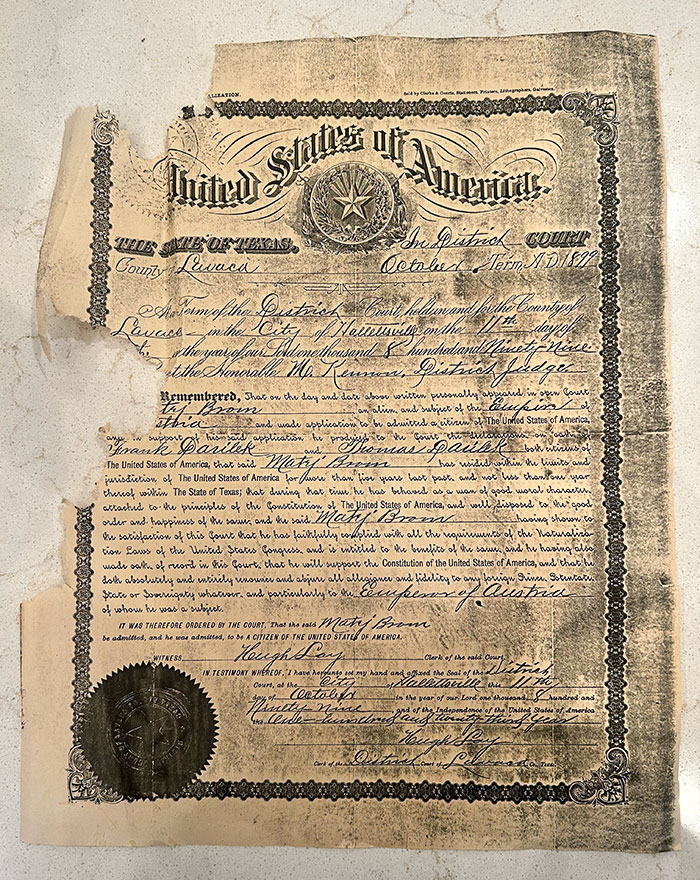 LIZATION.
Sold by Clarke & Courts, Stationers, Printers, Lithographers, Galveston.
United States of America.
THE STATE OF TEXAS, In District COURT
County Lavaca October Term, A.D. 1899
At a Term of the District Court, holden in and for the County of
Lavaca in the City of Hallettsville on the 11th day of
of the year of our Lord one thousand 8 hundred and Ninety Nine
the Honorable M. Kennon, District Judge
Remembered, That on the day and date above written personally appeared in open Court
Brom an alien and subject of the Empire of
and made application to be admitted a citizen of The United States of America,
and in support of his said application he produced to the Court the declaration on oath of
Frank Darilek and Thomas Darilek both citizens of
The United States of America, that said Matj Brom has resided within the limits and
jurisdiction of The United States of America for more than five years last past, and not less than one year
thereof within The State of Texas; that during that time he has behaved as a man of good moral character
attached to the principles of the Constitution of The United States of America, and well disposed to the good
order and happiness of the same; and the said Matj Brom having shown to
the satisfaction of this Court that he has faithfully complied with all the requirements of the Naturaliza-
tion Laws of the United States Congress, and is entitled to the benefits of the same, and he having also
made oath, of record in this Court, that he will support the Constitution of the United States of America, and that he
doth absolutely and entirely renounce and abjure all allegiance and fidelity to any foreign Prince, Potentate,
State or Sovereignty whatever, and particularly to the Emperor of Austria
of whom he was a subject.
IT WAS THEREFORE ORDERED BY THE COURT, That the said Matj Brom
be admitted, and he was admitted, to be A CITIZEN OF THE UNITED STATES OF AMERICA.
WITNESS Hugh Lay Clerk of the said Court
IN TESTIMONY WHEREOF, I have hereunto set my hand and affixed the Seal of the District
Court, at the City of Hallettsville this 11th
day of October in the year of our Lord one thousand 8 hundred and
Ninety Nine and of the Independence of the United States of America
the One-hundred and twenty third Year
Hugh Lay
Clerk of the District Court of Lavaca Co., Texas.